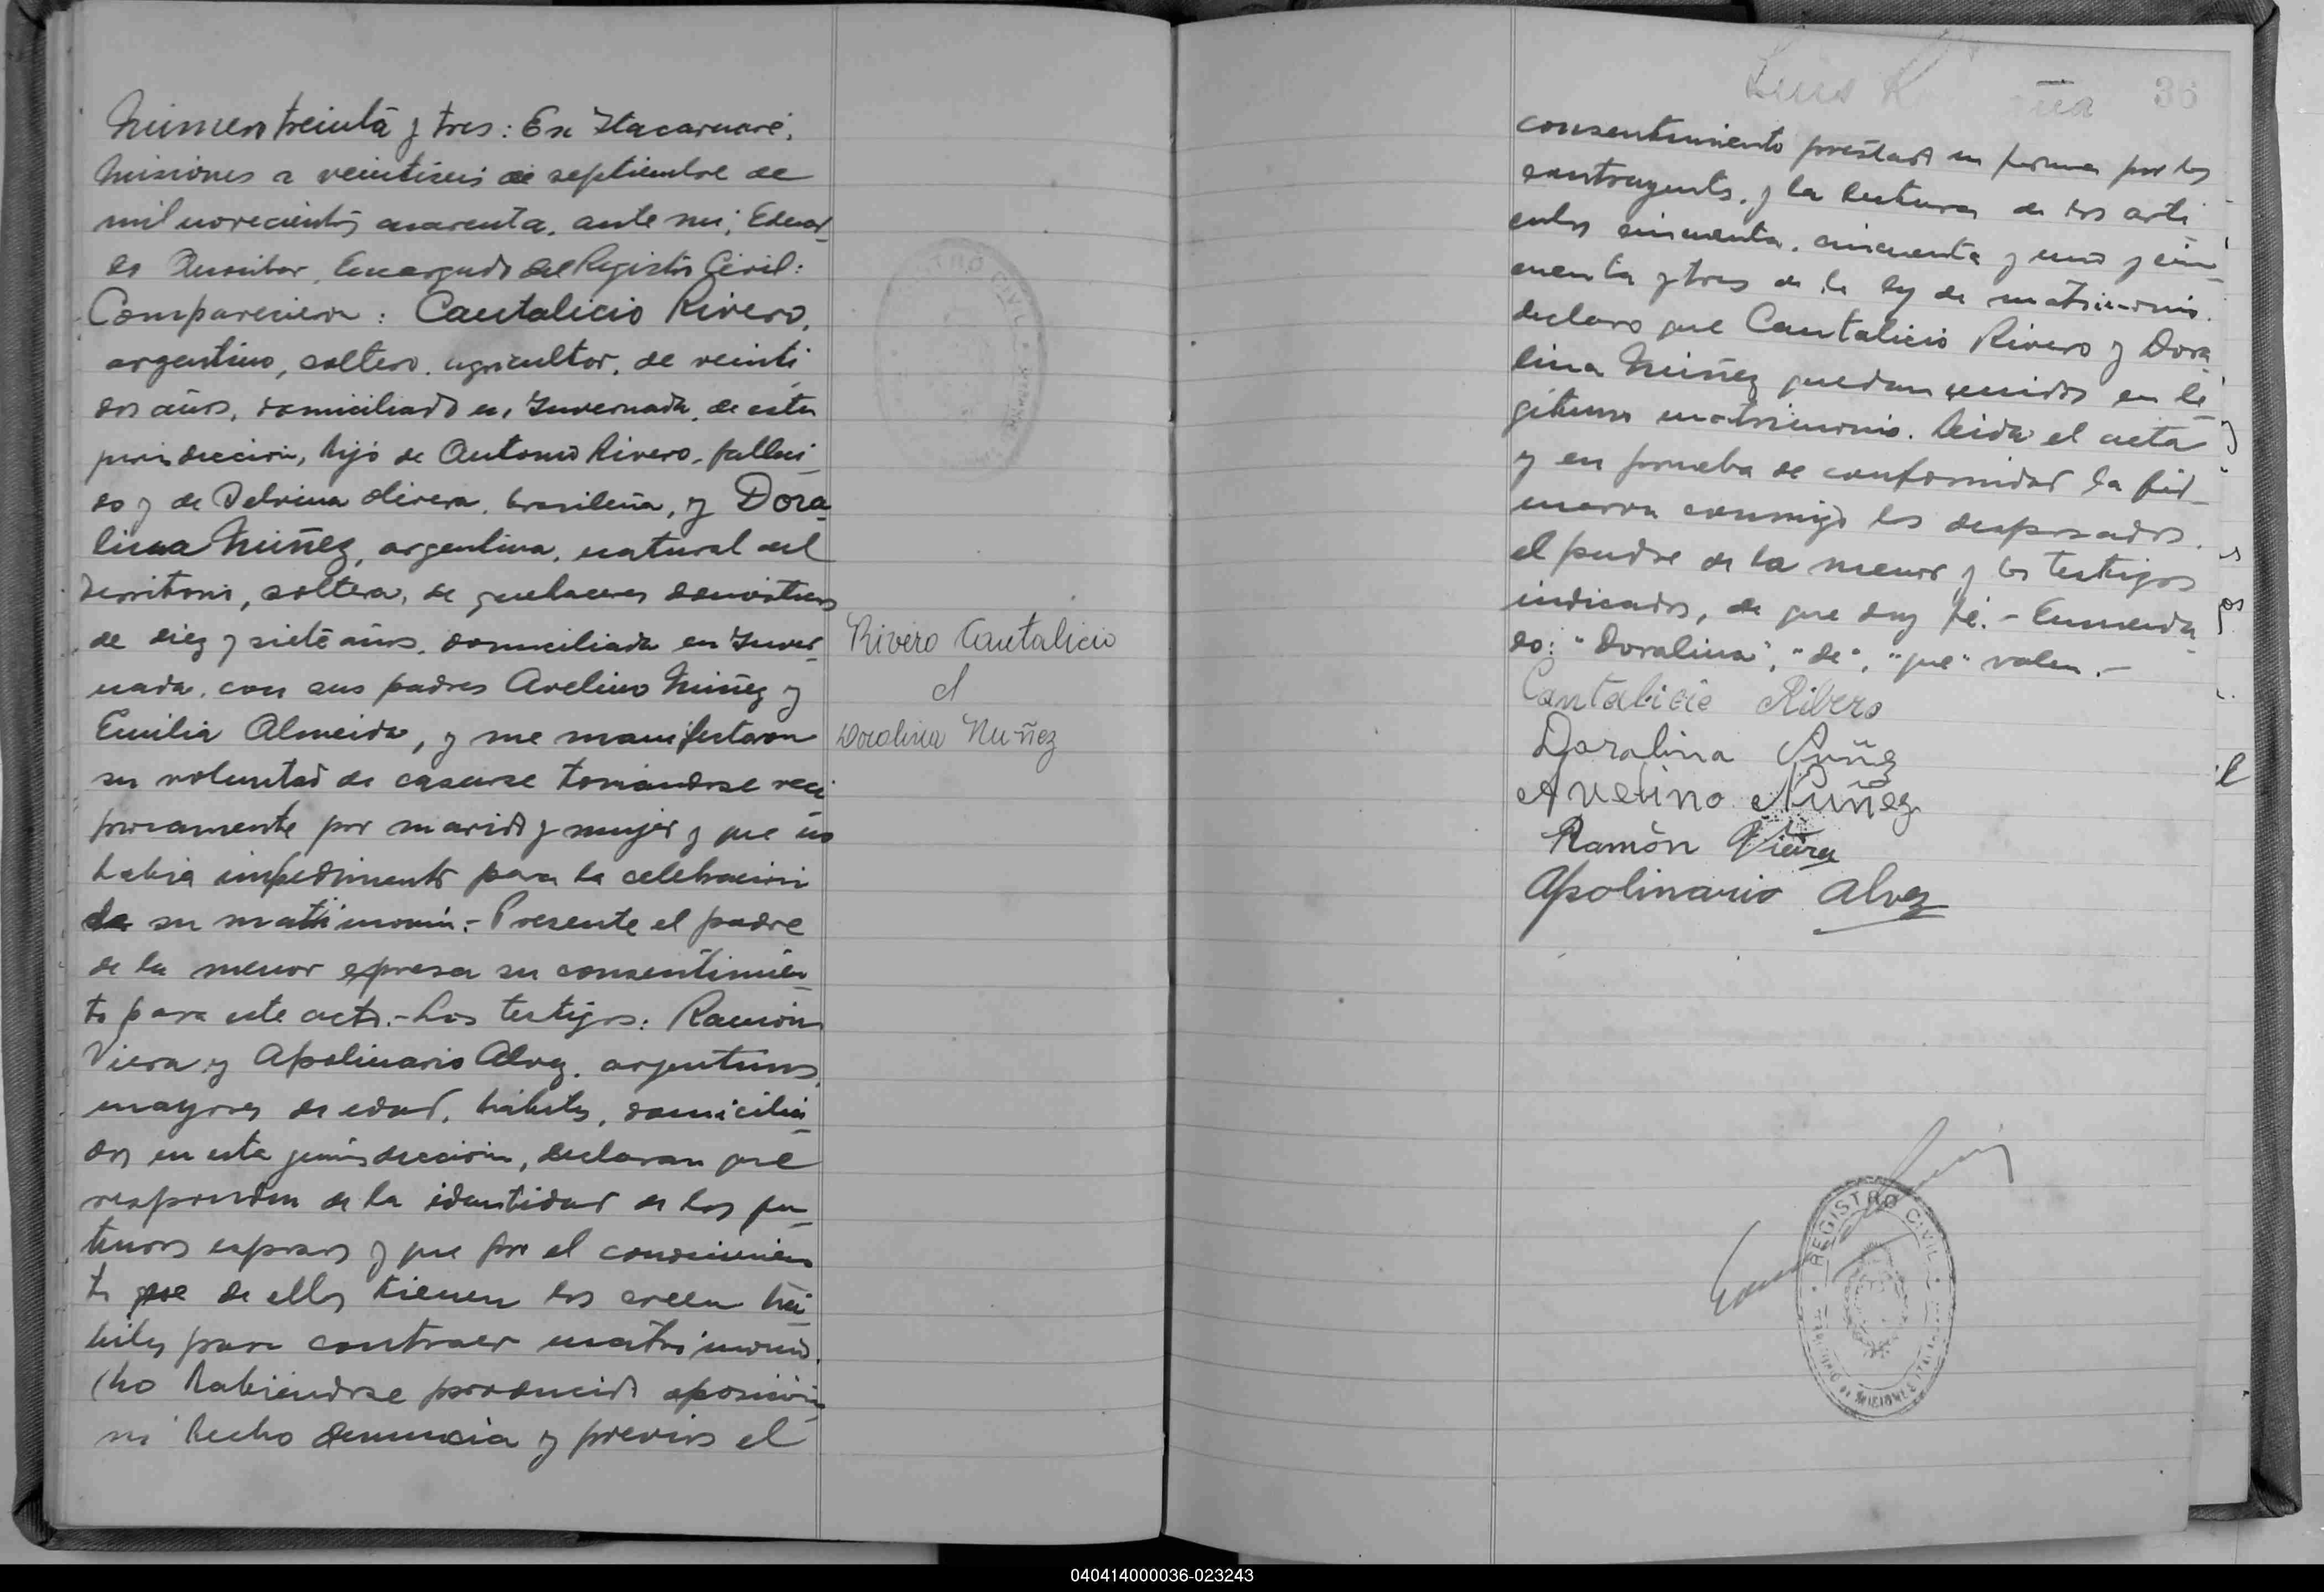 Número treinta y tres: En Itacaruaré,
Misiones a veintiseis de septiembre de
mil novecientos cuarenta, ante mi, Eduar_
do Encargado del Registro Civil:
Comparecieron: Cantalicio Rivero,
argentino, soltero, agricultor, de veinti_
dos años, domiciliado en Invernada, de esta
jurisdiccion, hijo de Antonio Rivero, falleci_
do y de olivera, brasileña, y Dora_
lina Núñez, argentina, natural del
territorio, soltera, de quehaceres domésticos
de diez y siete años, domiciliada en Inver_
nada, con sus padres Avelino Núñez y
Emilia Almeida, y me manifestaron
su voluntad de casarse tomándose reci_
procamente por marido y mujer y que no
habia impedimento para la celebracion
de su matrimonio.- Presente el padre
de la menor expresa su consentimien_
to para este acto.- Los testigos: Ramón
Viera y Apolinario Alvez, argentinos,
mayores de edad, hábiles, domicilia_
dos en esta jurisdiccion, declaran que
responden de la identidad de los fu_
turos esposos y que por el conocimien_
to que de ellos tienen los creen há_
biles para contraer matrimonio.
No habiendose producido oposición
ni hecho denuncia y previos el
Rivero Cantalicio
c/
Doralina Nuñez
Luis
36
consentimiento prestado en forma por los
contrayentes, y la lectura de los artí_
culos cincuenta, cincuenta y uno y cin_
cuenta y tres de la ley de matrimonio,
declaro que Cantalicio Rivero y Dora_
lina Núñez quedan unidos en le_
gitimo matrimonio. Leida el acta
y en prueba de conformidad la fir_
maron conmigo los desposados,
el padre de la menor y los testigos
indicados, de que doy fé.- Enmenda_
do: "Doralina", "de", "que" valen.-
Cantalicie Ribero
Doralina Nuñez
Avelino Nuñez
Ramón Vieira
Apolinario Alvez
REGISTRO CIVIL
040414000036-023243